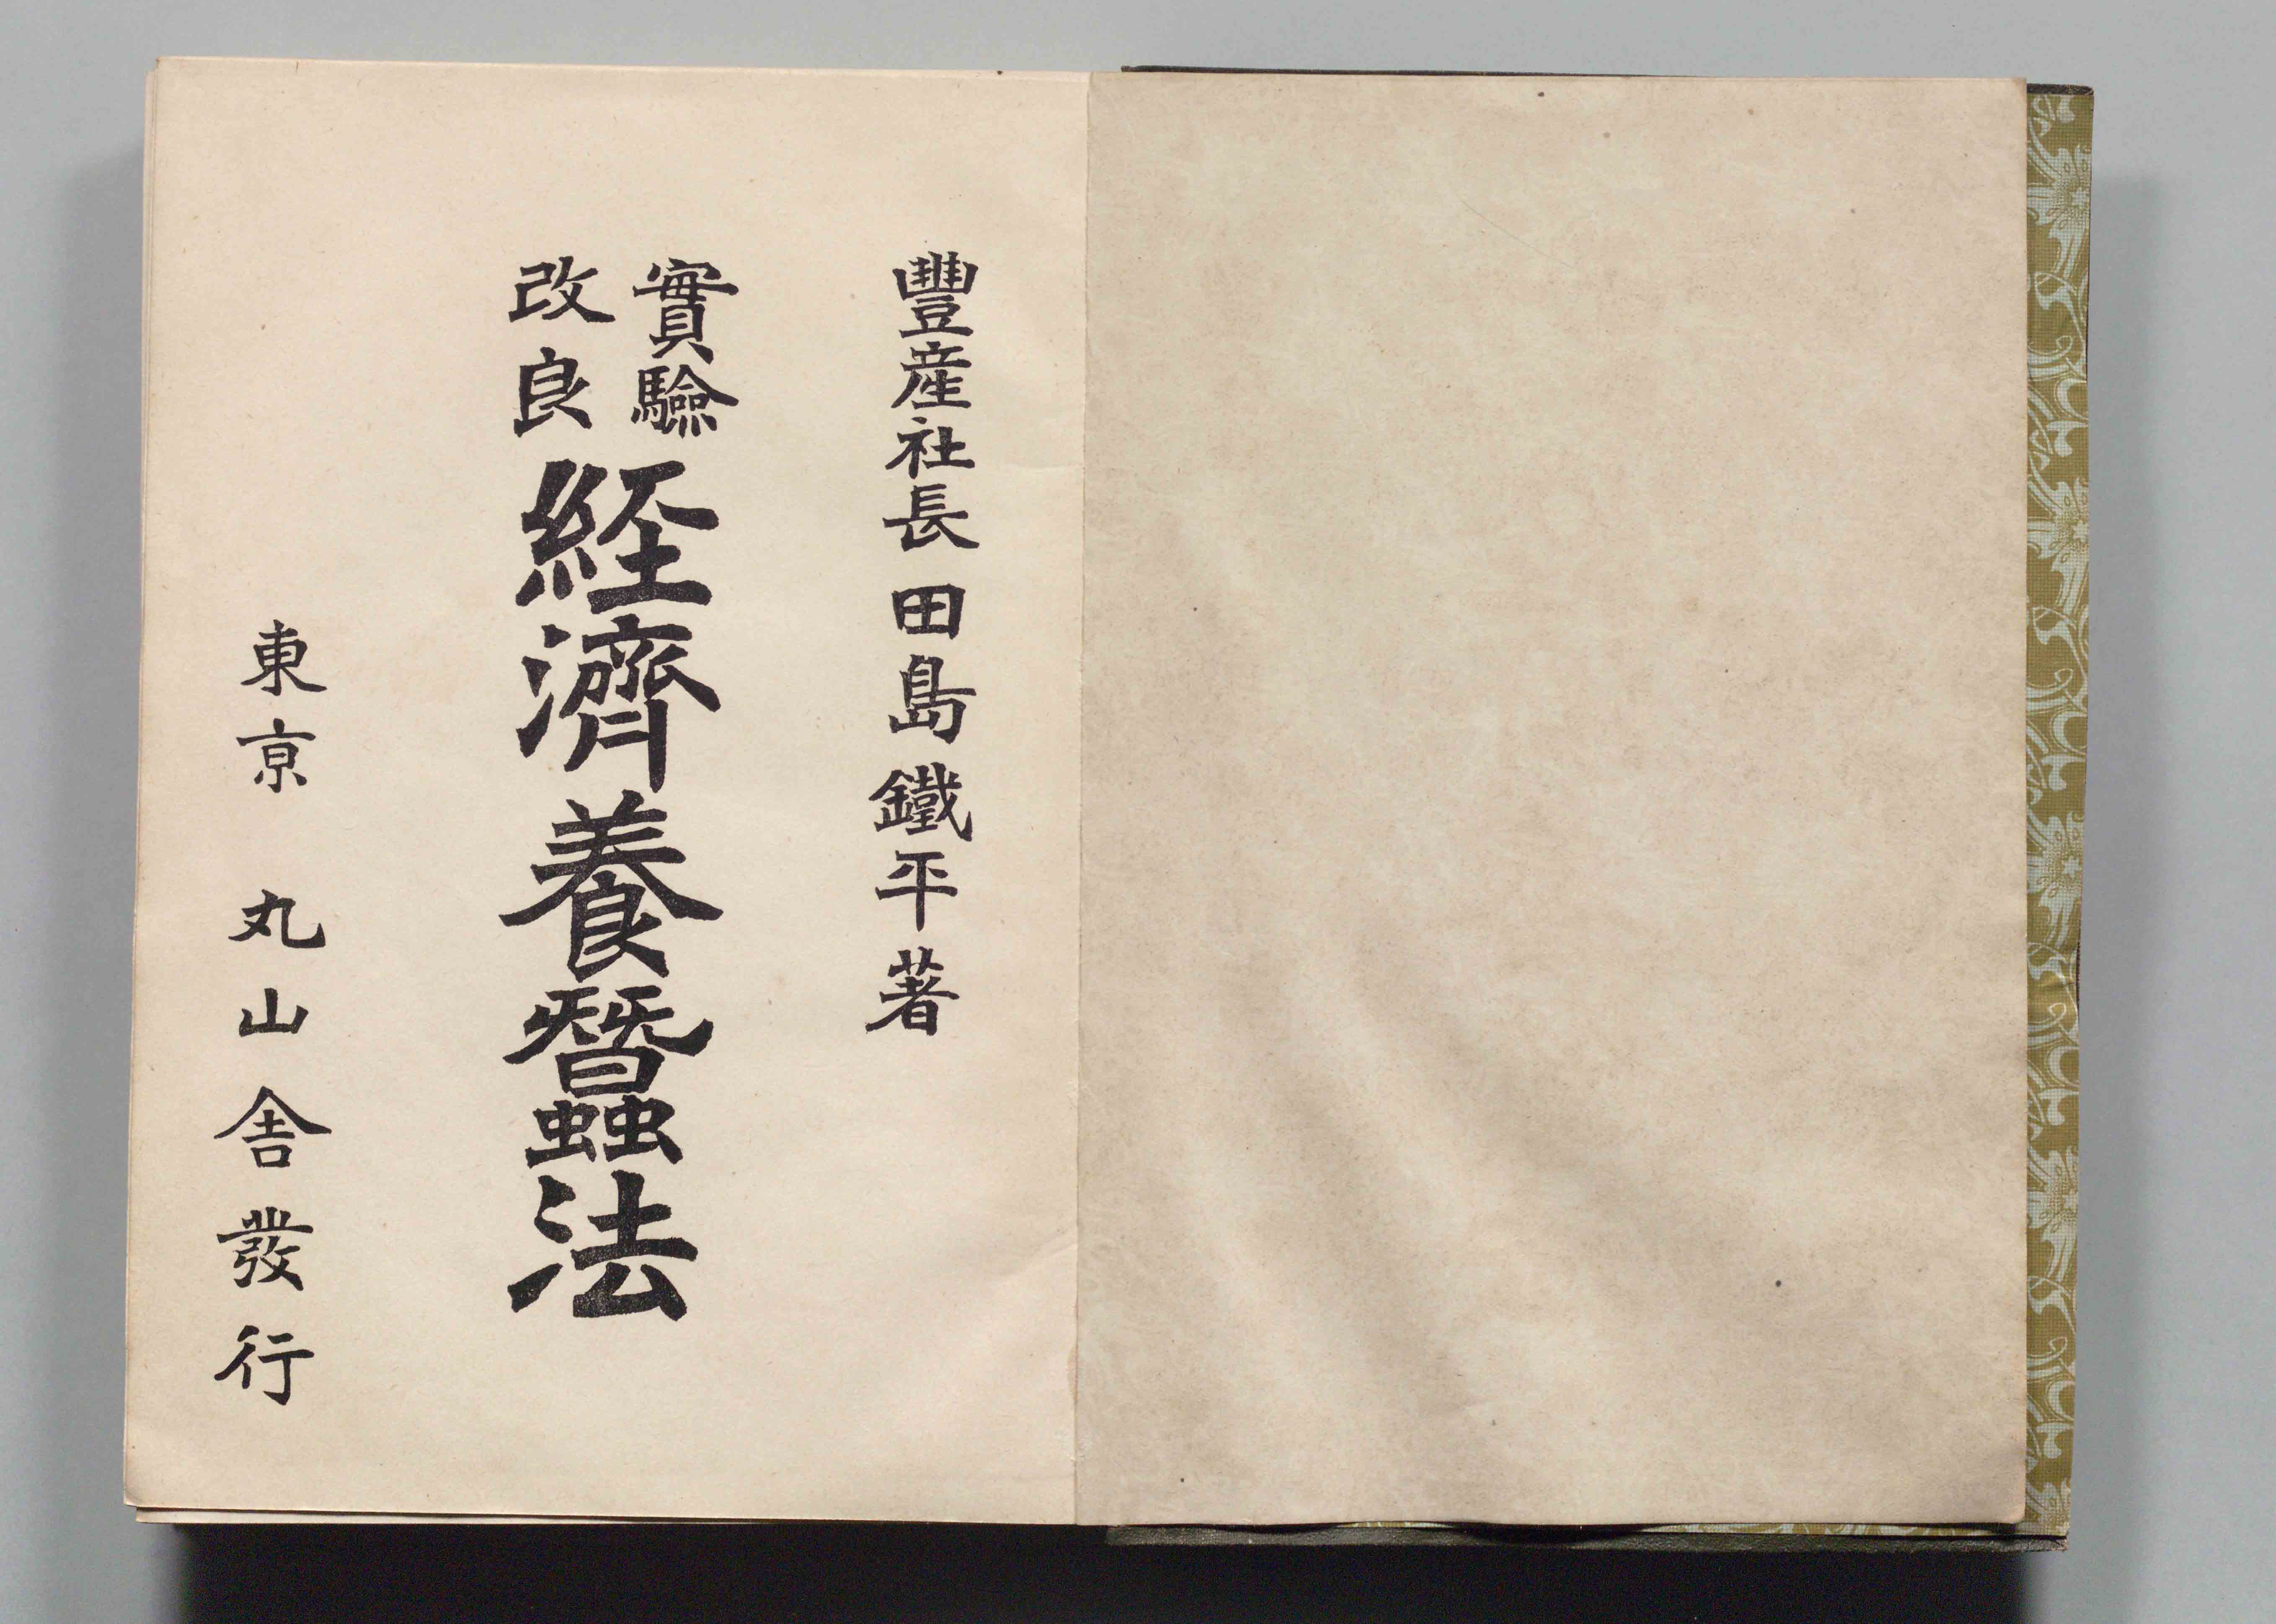 豐産社長田島鐵平著
實驗
改良
経濟養蠶法
東京 丸山舎發行